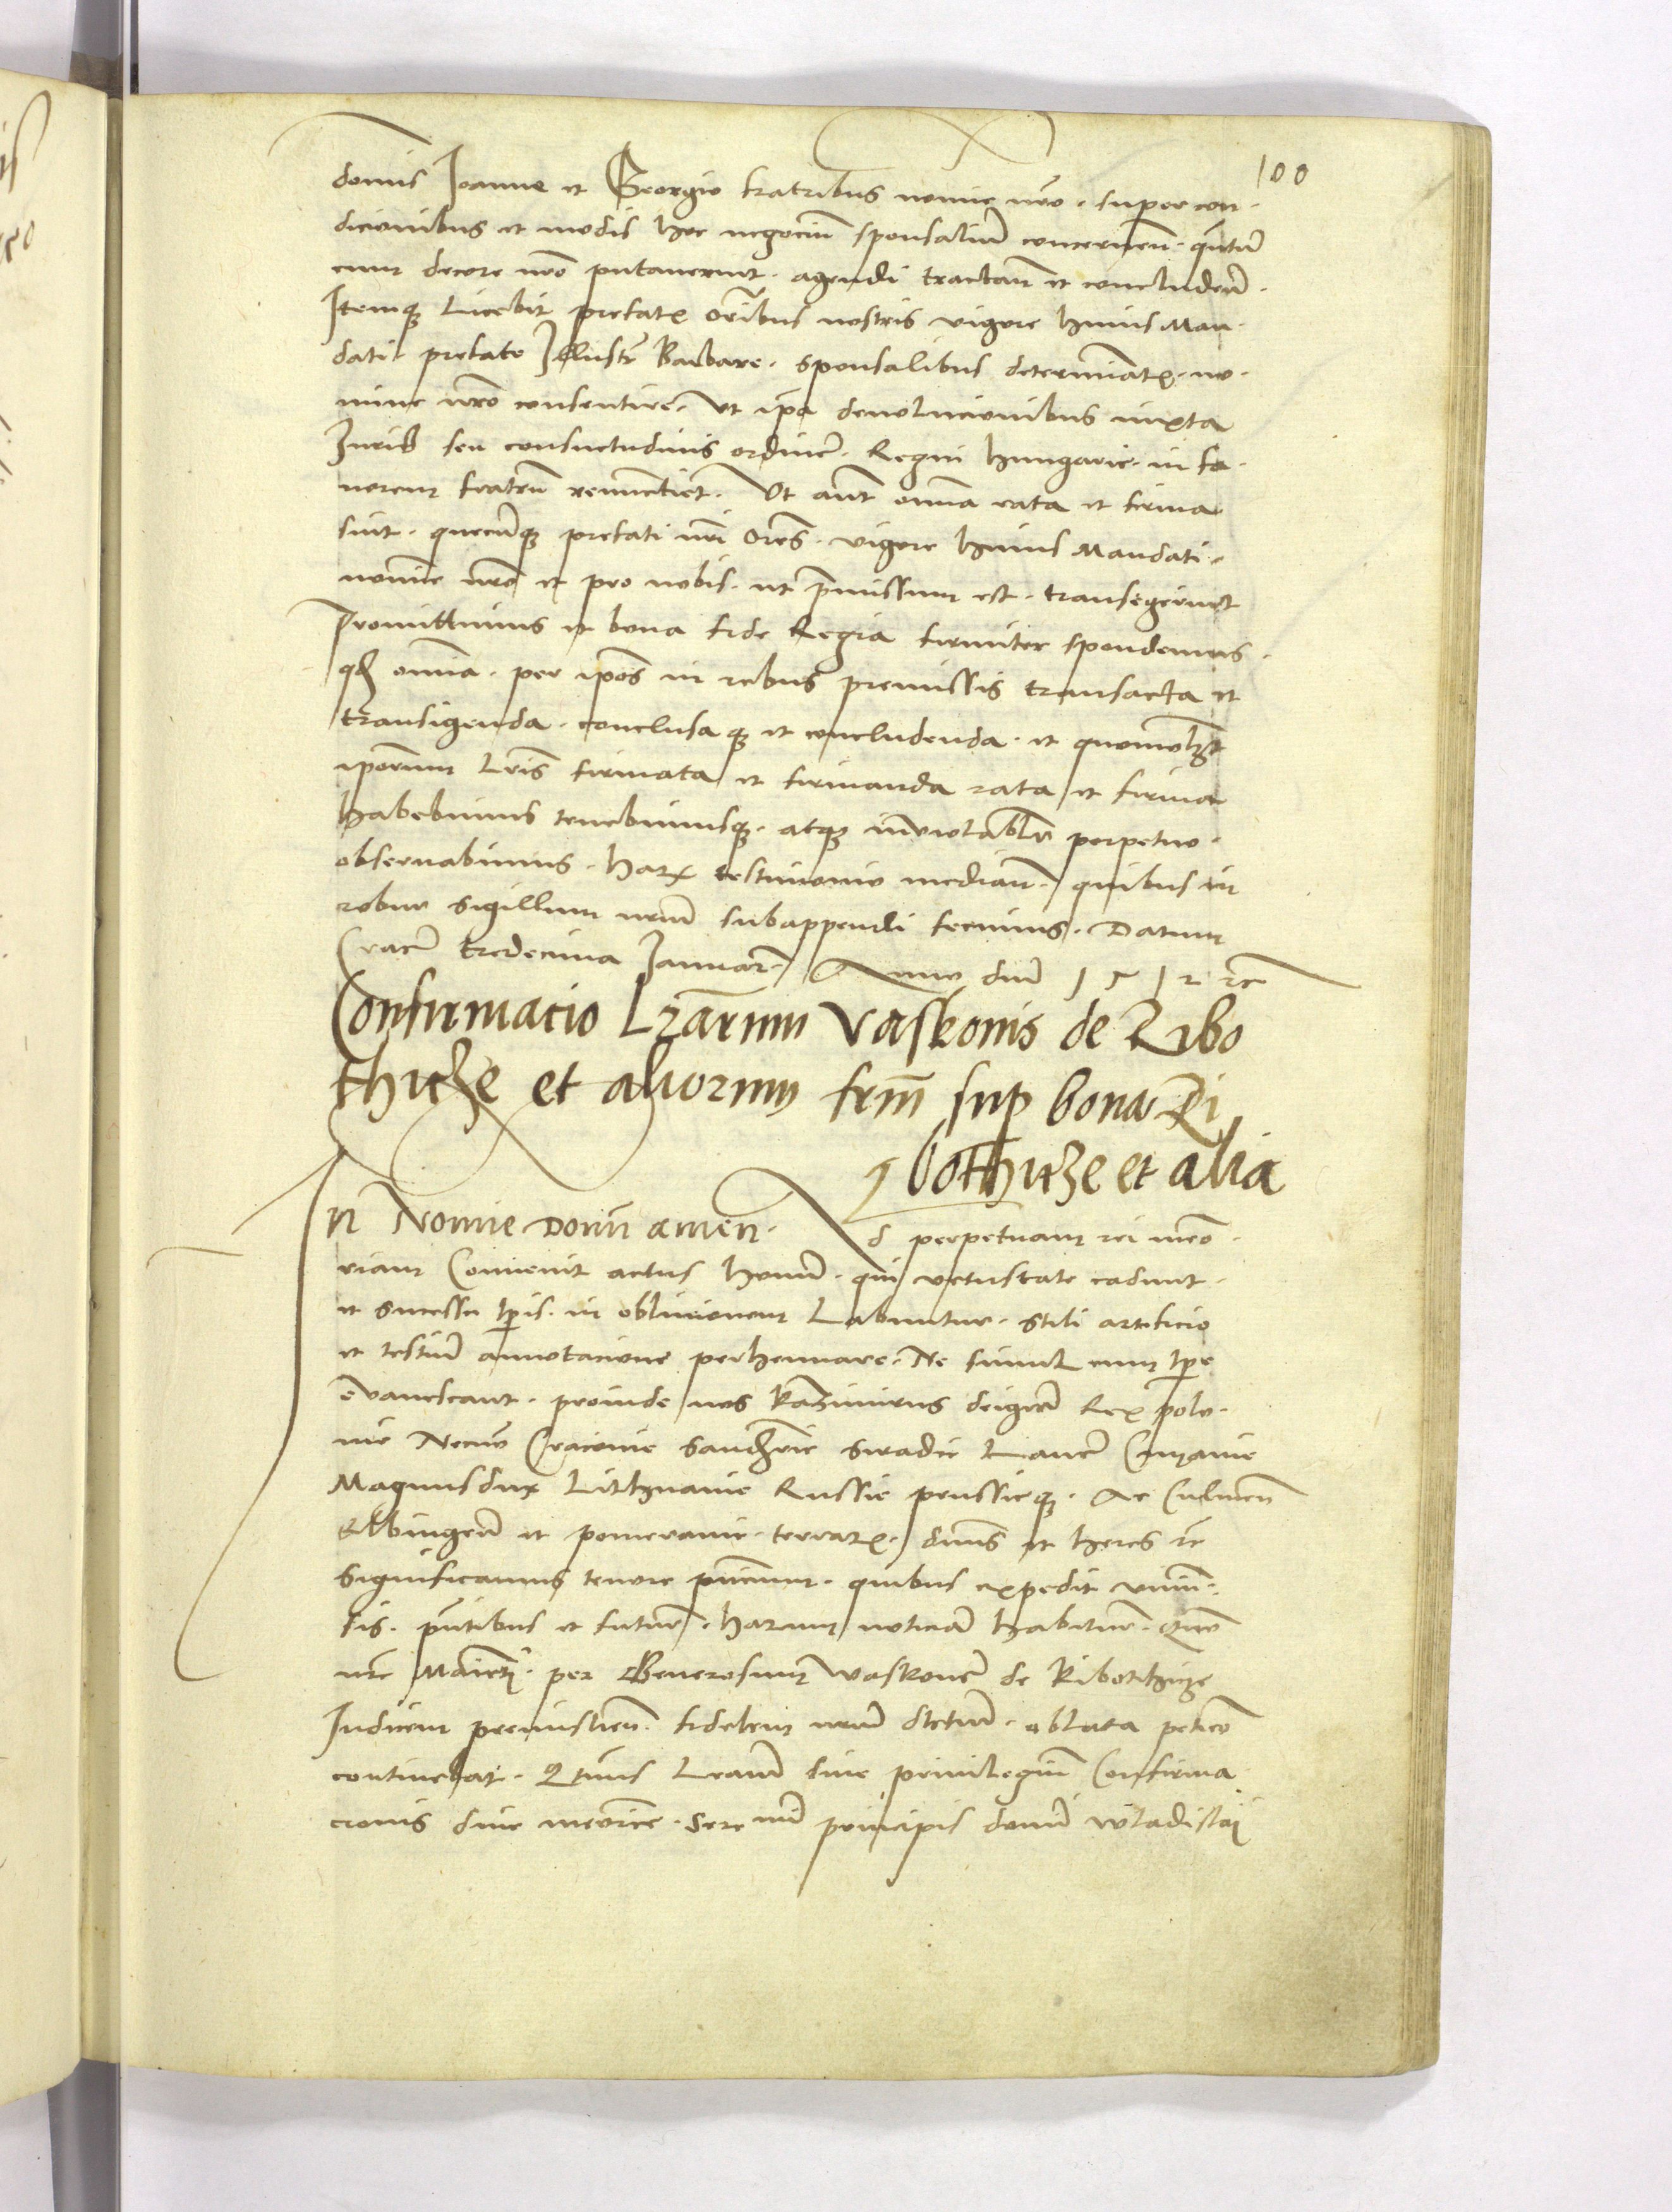 100
domis Joanne et Georgio fratribus nomine nro. super con-
dicionibus et modis hoc negocium sponsaliũ concernen. qntũ
cum decore nro putaverint. agendi tractan et concludeñ.
Itemq licebit prefatis oribus nostris vigore huius Man-
dati prefate Illustri Barbare. sponsalibus determinatis. no-
mine nro consentire. Ut ipa devolucionibus iuxta
Iuris seu consuetudinis ordinẽ. Regni hungarie. in fa-
vorem fratrũ renunctiet. Ut aut omnia rata et firma
sint. quecũq prefati nri Ores. vigore huius Mandati.
nomine nro et pro nobis. ut pmissum est. transegerint
Promittimus et bona fide Regia firmiter spondemus.
qd omnia. per ipos in rebus premissis transacta et
transigenda. conclusa q et concludenda. et quomolzt
iporum lris firmata et firmanda rata et firma
habebimus tenebimusq. atq inviolablr perpetuo.
observabimus. harx testimonio median. quibus in
robur sigillum nrum subappendi fecimus. Datum
Cracie tredecima Januarii Anno dni 1512 etc
Confirmacio Lrarum Vaskonis de Ribo
thicze et aliorum frm sup bona Ri
bothicze et alia
In Nomine Domi amen. Ad perpetuam rei memo-
riam Convenit actus hominũ. qui vetustate cadunt.
et sucessu tpis. in oblivionem Labuntur. stili artificio
et testiũ annotacione perhennare. Ne simul cum tpe
evanescant. proinde nos Kazimirus deigrã Rex polo-
nie Necno Cracovie Sandzrie Siradie Lancie Cuyavie
Magnusdux Lithuanie Russie prussieq. Ac Culmeñ
Elbingeñ et pomeranie terrarx. dnus et heres etc
Significamus tenore pncium. quibus expedit univ-
sis. pntibus et futuris. harum noticiã habituris. Quo
nre Maiesti. per Generosum Waskonẽ de Ribothicze
Iudicem premislien. fidelem nrum dlctum. oblata peticio
continebat. Qtnus Lraum sive privilegium Confirma
cionis dive memorie. Sere nmi principis domi Wladislai